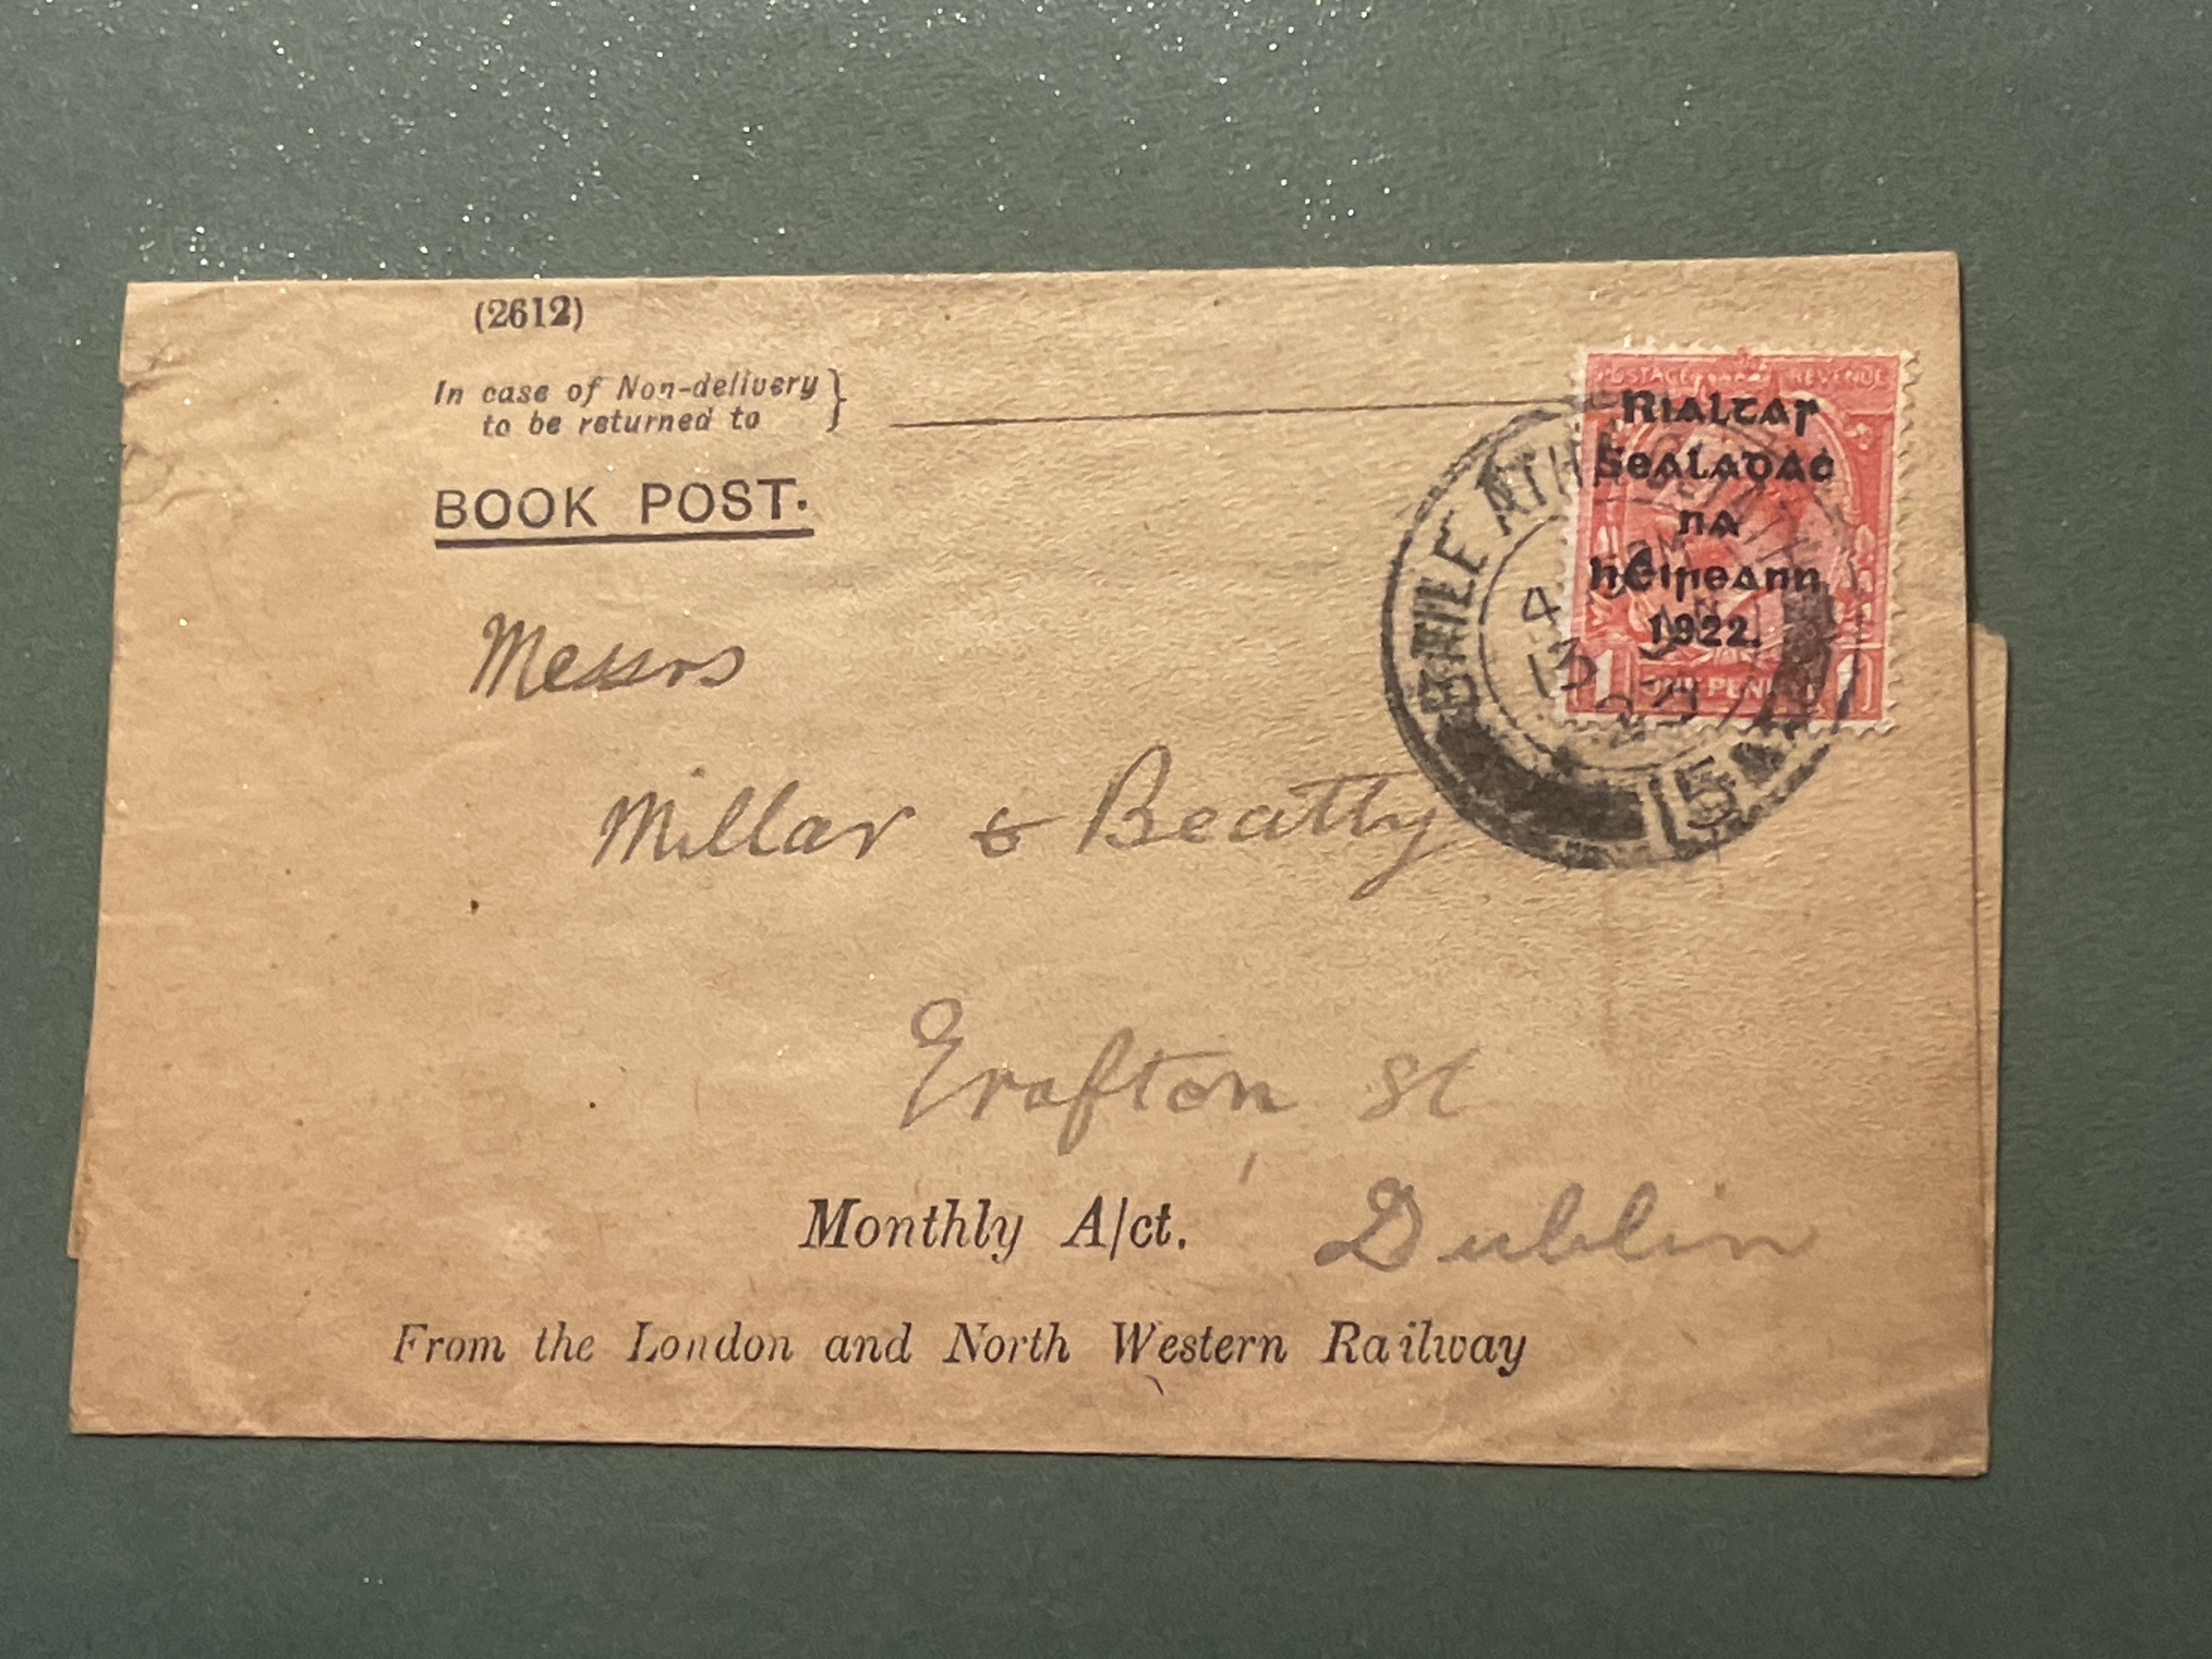 (2612)
In case of Non-delivery
to be returned to
BOOK POST.
POSTAGE REVENUE
Rialtas
Sealadaċ
na
hÉireann
1922.
ONE PENNY
BAILE ATHA CLIATH
4
13 JAN
23
5
Messrs
Millar & Beatty
Grafton St
Dublin
Monthly A/ct.
From the London and North Western Railway